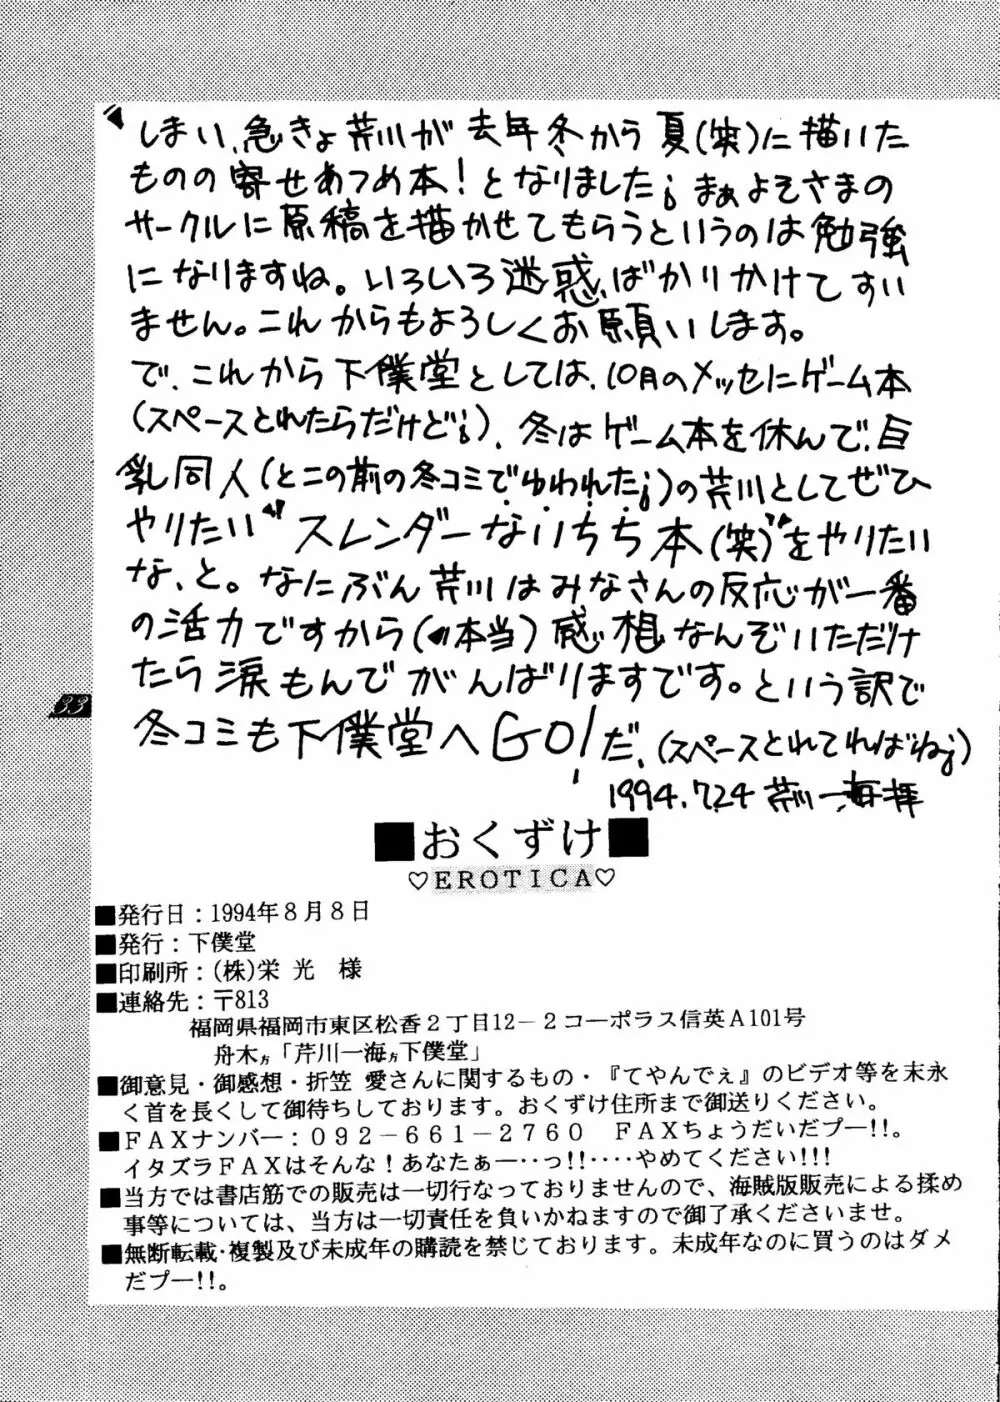 しまい、急きょ芹川が去年冬から夏(笑)に描いた
ものの寄せあつめ本!となりました;まぁよそさまの
サークルに原稿を描かせてもらうというのは勉強
になりますね。いろいろ迷惑ばかりかけてすい
ません。これからもよろしくお願いします。
で、これから下僕堂としては、10月のメッセにゲーム本
(スペースとれたらだけど;)、冬はゲーム本を休んで、巨
乳同人(とこの前の冬コミでゆわれた;)の芹川としてぜひ
やりたい“スレンダーないちち本(笑)”をやりたい
な、と。なにぶん芹川はみなさんの反応が一番
の活力ですから(本当)感想なんぞいただけ
たら涙もんでがんばりますです。という訳で
冬コミも下僕堂へGO!だ、(スペースとれてればね;)
1994.7.24 芹川一海拝
33
■おくずけ■
♡EROTICA♡
■発行日:1994年8月8日
■発行:下僕堂
■印刷所:(株)栄 光 様
■連絡先:〒813
福岡県福岡市東区松香2丁目12-2コーポラス信英A101号
舟木方「芹川一海方下僕堂」
■御意見・御感想・折笠 愛さんに関するもの・『てやんでぇ』のビデオ等を末永
く首を長くして御待ちしております。おくずけ住所まで御送りください。
■FAXナンバー:092-661-2760 FAXちょうだいだプー!!。
イタズラFAXはそんな!あなたぁー‥っ!!‥‥やめてください!!!
■当方では書店筋での販売は一切行なっておりませんので、海賊版販売による揉め
事等については、当方は一切責任を負いかねますので御了承くださいませ。
■無断転載・複製及び未成年の購読を禁じております。未成年なのに買うのはダメ
だプー!!。